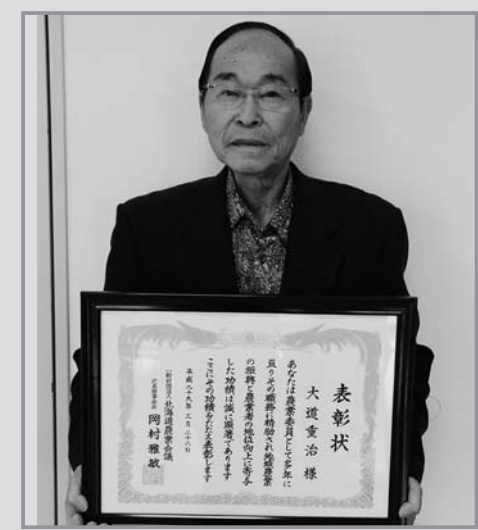 表彰状
大道重治 様
あなたは農業委員として多年に
亘りその職務に精励され地域農業
の振興と農業者の地位向上に寄与
した功績は誠に顕著であります
ここにその功績をたたえ表彰します
平成二十九年三月二十八日
一般社団法人 北海道農業会議
代表理事会長 岡村雅敏